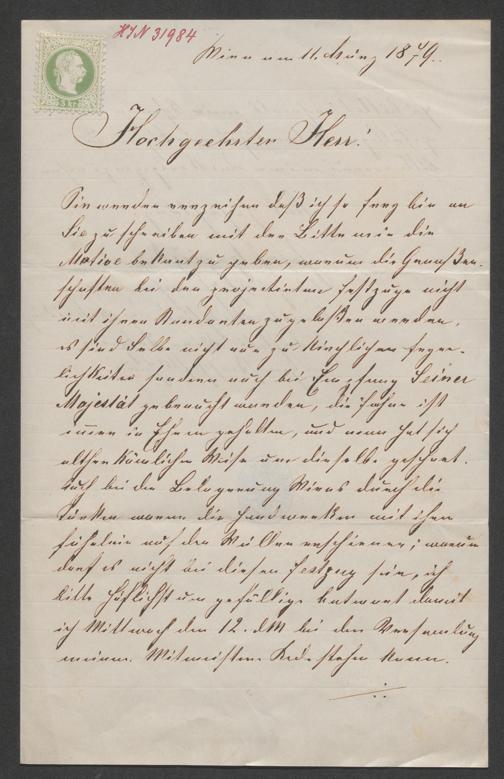 HIN 31984
Wien am 11. März 1879.
Hochgeehrter Herr!
Sie werden verzeihen daß ich so frey bin an
Sie zu schreiben mit der Bitte mir die
Motive bekant zu geben, warum die Genoßen-
schaften bei den projectirten Festzuge nicht
mit ihren Standarten zugelaßen werden,
es sind selbe nicht nur zu kirchlichen Feyer-
lichkeiten sondern auch bei Empfang Seiner
Majestät gebraucht worden, die Fahne ist
immer in Ehren gehalten, und man hat sich
altherkömlicher Weise um dieselbe geschart.
Auch bei der Belagerung Wiens durch die
Türken waren die Handwerker mit ihren
Fähnlein auf den Wällen erschienen; warum
darf es nicht bei diesen Festzug sein, ich
bitte höflichst um gefällige Antwort damit
ich Mittwoch den 12. dM bei der Versamlung
meinen Mitmeistern Rede stehen kann.